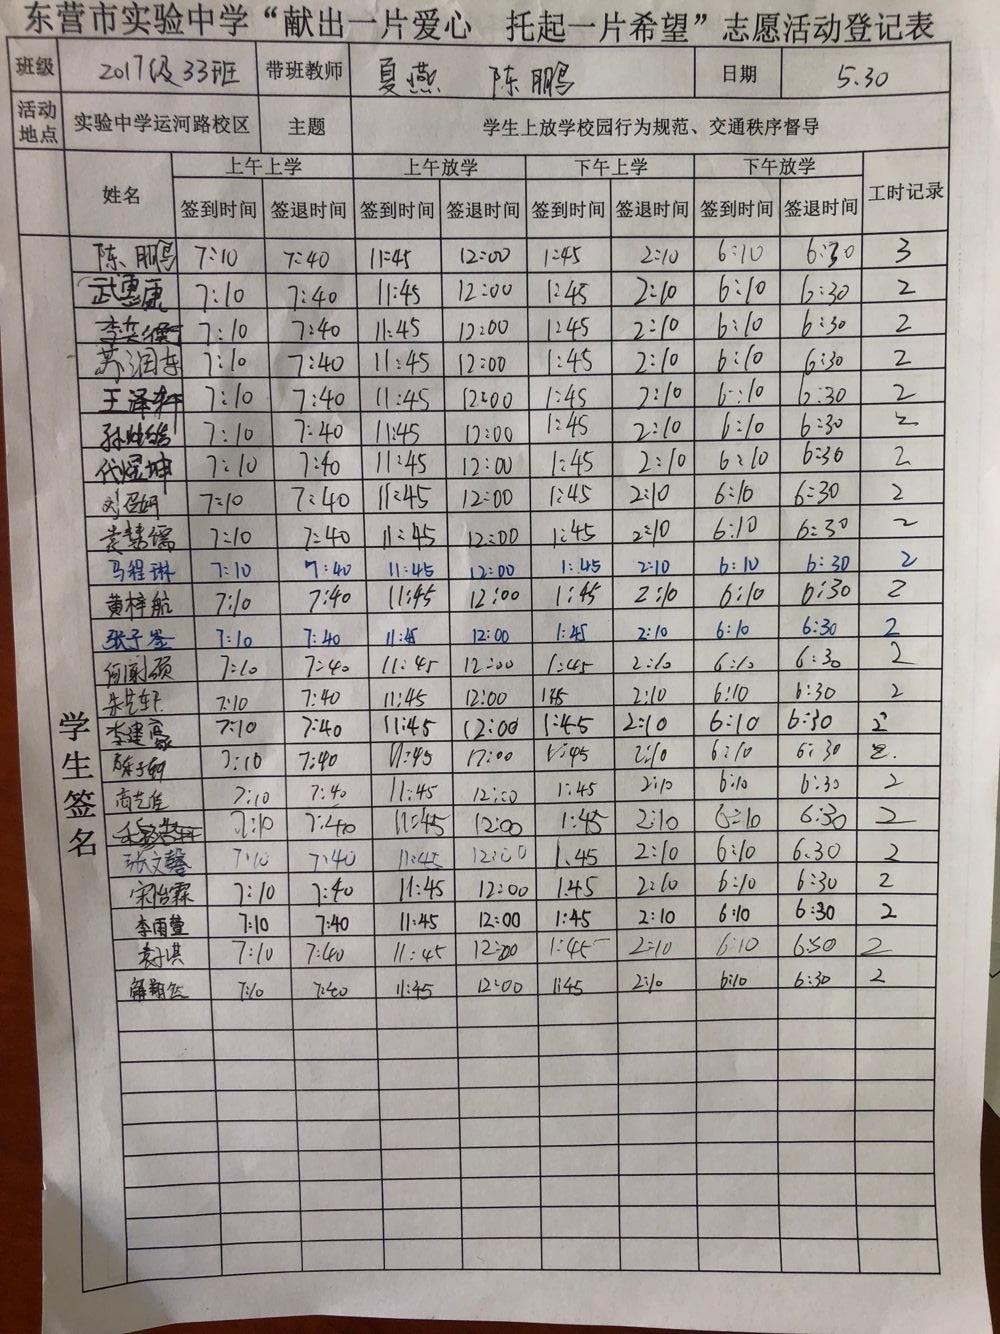 东营市实验中学“献出一片爱心 托起一片希望”志愿活动登记表
班级 2017级33班 带班教师 夏燕 陈鹏 日期 5.30
活动地点 实验中学运河路校区 主题 学生上放学校园行为规范、交通秩序督导
姓名 上午上学 上午放学 下午上学 下午放学 工时记录
签到时间 签退时间 签到时间 签退时间 签到时间 签退时间 签到时间 签退时间
学生签名
陈鹏 7:10 7:40 11:45 12:00 1:45 2:10 6:10 6:30 3
武惠康 7:10 7:40 11:45 12:00 1:45 2:10 6:10 6:30 2
7:10 7:40 11:45 12:00 1:45 2:10 6:10 6:30 2
苏润东 7:10 7:40 11:45 12:00 1:45 2:10 6:10 6:30 2
王泽轩 7:10 7:40 11:45 12:00 1:45 2:10 6:10 6:30 2
7:10 7:40 11:45 12:00 1:45 2:10 6:10 6:30 2
代煜坤 7:10 7:40 11:45 12:00 1:45 2:10 6:10 6:30 2
7:10 7:40 11:45 12:00 1:45 2:10 6:10 6:30 2
袁慧儒 7:10 7:40 11:45 12:00 1:45 2:10 6:10 6:30 2
马程琳 7:10 7:40 11:45 12:00 1:45 2:10 6:10 6:30 2
黄梓航 7:10 7:40 11:45 12:00 1:45 2:10 6:10 6:30 2
7:10 7:40 11:45 12:00 1:45 2:10 6:10 6:30 2
7:10 7:40 11:45 12:00 1:45 2:10 6:10 6:30 2
朱艺轩 7:10 7:40 11:45 12:00 1:45 2:10 6:10 6:30 2
李建豪 7:10 7:40 11:45 12:00 1:45 2:10 6:10 6:30 2
7:10 7:40 11:45 12:00 1:45 2:10 6:10 6:30 2.
高艺佳 7:10 7:40 11:45 12:00 1:45 2:10 6:10 6:30 2
7:10 7:40 11:45 12:00 1:45 2:10 6:10 6:30 2
张文馨 7:10 7:40 11:45 12:00 1.45 2:10 6:10 6.30 2
宋怡霖 7:10 7:40 11:45 12:00 1:45 2:10 6:10 6:30 2
李雨萱 7:10 7:40 11:45 12:00 1:45 2:10 6:10 6:30 2
7:10 7:40 11:45 12:00 1:45 2:10 6:10 6:30 2
7:10 7:40 11:45 12:00 1:45 2:10 6:10 6:30 2